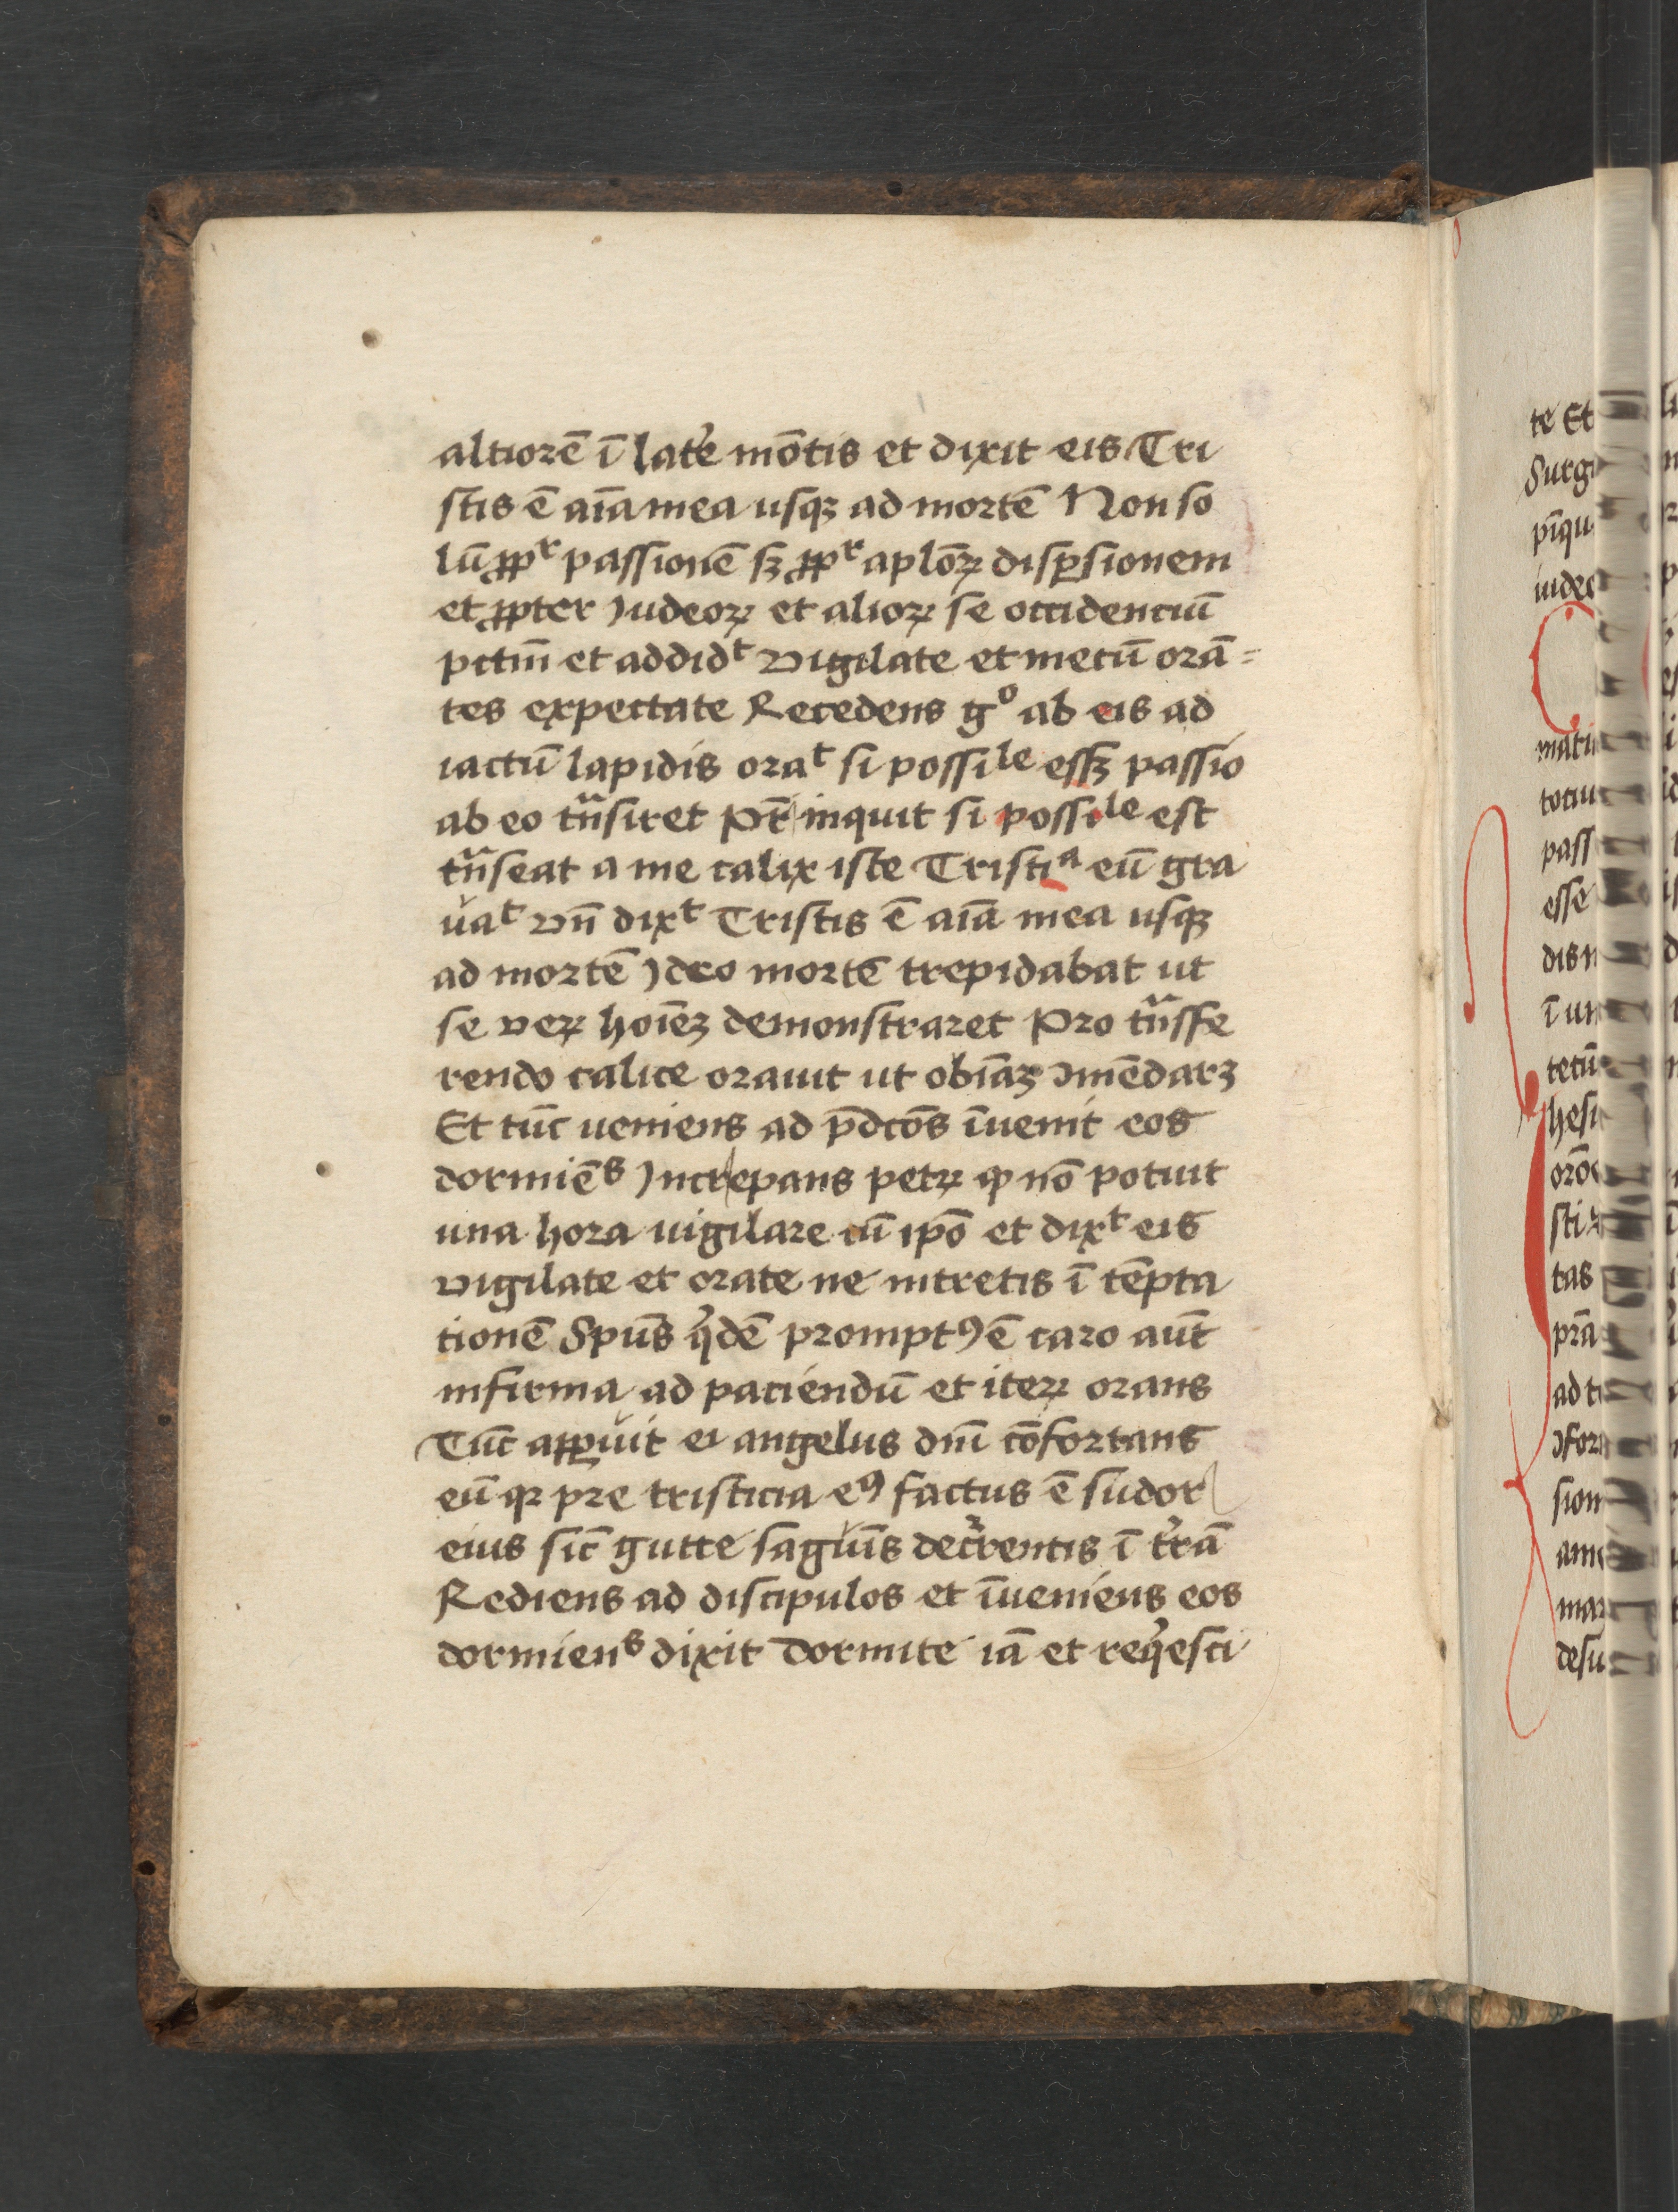 altiorē ī lat͛e mōtis et dixit eis Tri
stis ē aīa mea usqꝫ ad mortē Non so
lū ꝓpᵗ passionē sꝫ ꝓpᵗ aplōꝝ disꝑsionem
et ꝓpter Iudeoꝝ et alioꝝ se occidenciū
pctm̄ et addidᵗ vigilate et mecū orā=
tes expectate Recedens gᵒ ab eis ad
iactū lapidis oraᵗ si possiˡᵉ essꝫ passio
ab eo tn̄siret Pr̄ inquit si possiˡᵉ est
tn̄seat a me calix iste Tristiᵃ eū gra
uaᵗ vn̄ dixᵗ Tristis ē aīa mea usqꝫ
ad mortē Ideo mortē trepidabat ut
se veꝝ hoīeꝫ demonstraret Pro tn̄sfe
rendo calice orauit ut obīaꝫ ꝯmēdarꝫ
Et tūc ueniens ad p̄dcōs īuenit eos
dormiēˢ Increpans petꝝ ꝙ nō potuit
una hora uigilare cū ipō et dixᵗ eis
vigilate et orate ne intretis ī tēpta
tionē Spūs qͥdē promptꝰ ē caro aūt
infirma ad paciendū et iteꝝ orans
Tūc apꝑuit ei angelus dnī cōfortans
eū qꝛ pre tristicia eꝰ factus ē sudor
eius sic̄ gutte sagūīs dec͛rentis ī t͛rā
Rediens ad discipulos et īueniens eos
dormienˢ dixit Dormite iā et reqͥesci
te Et
Surg
pīqu
iudeo
totiu
pass
esse
dis
ī un
tecū
hesu
tas
ad t
ꝯfor
sion
desu